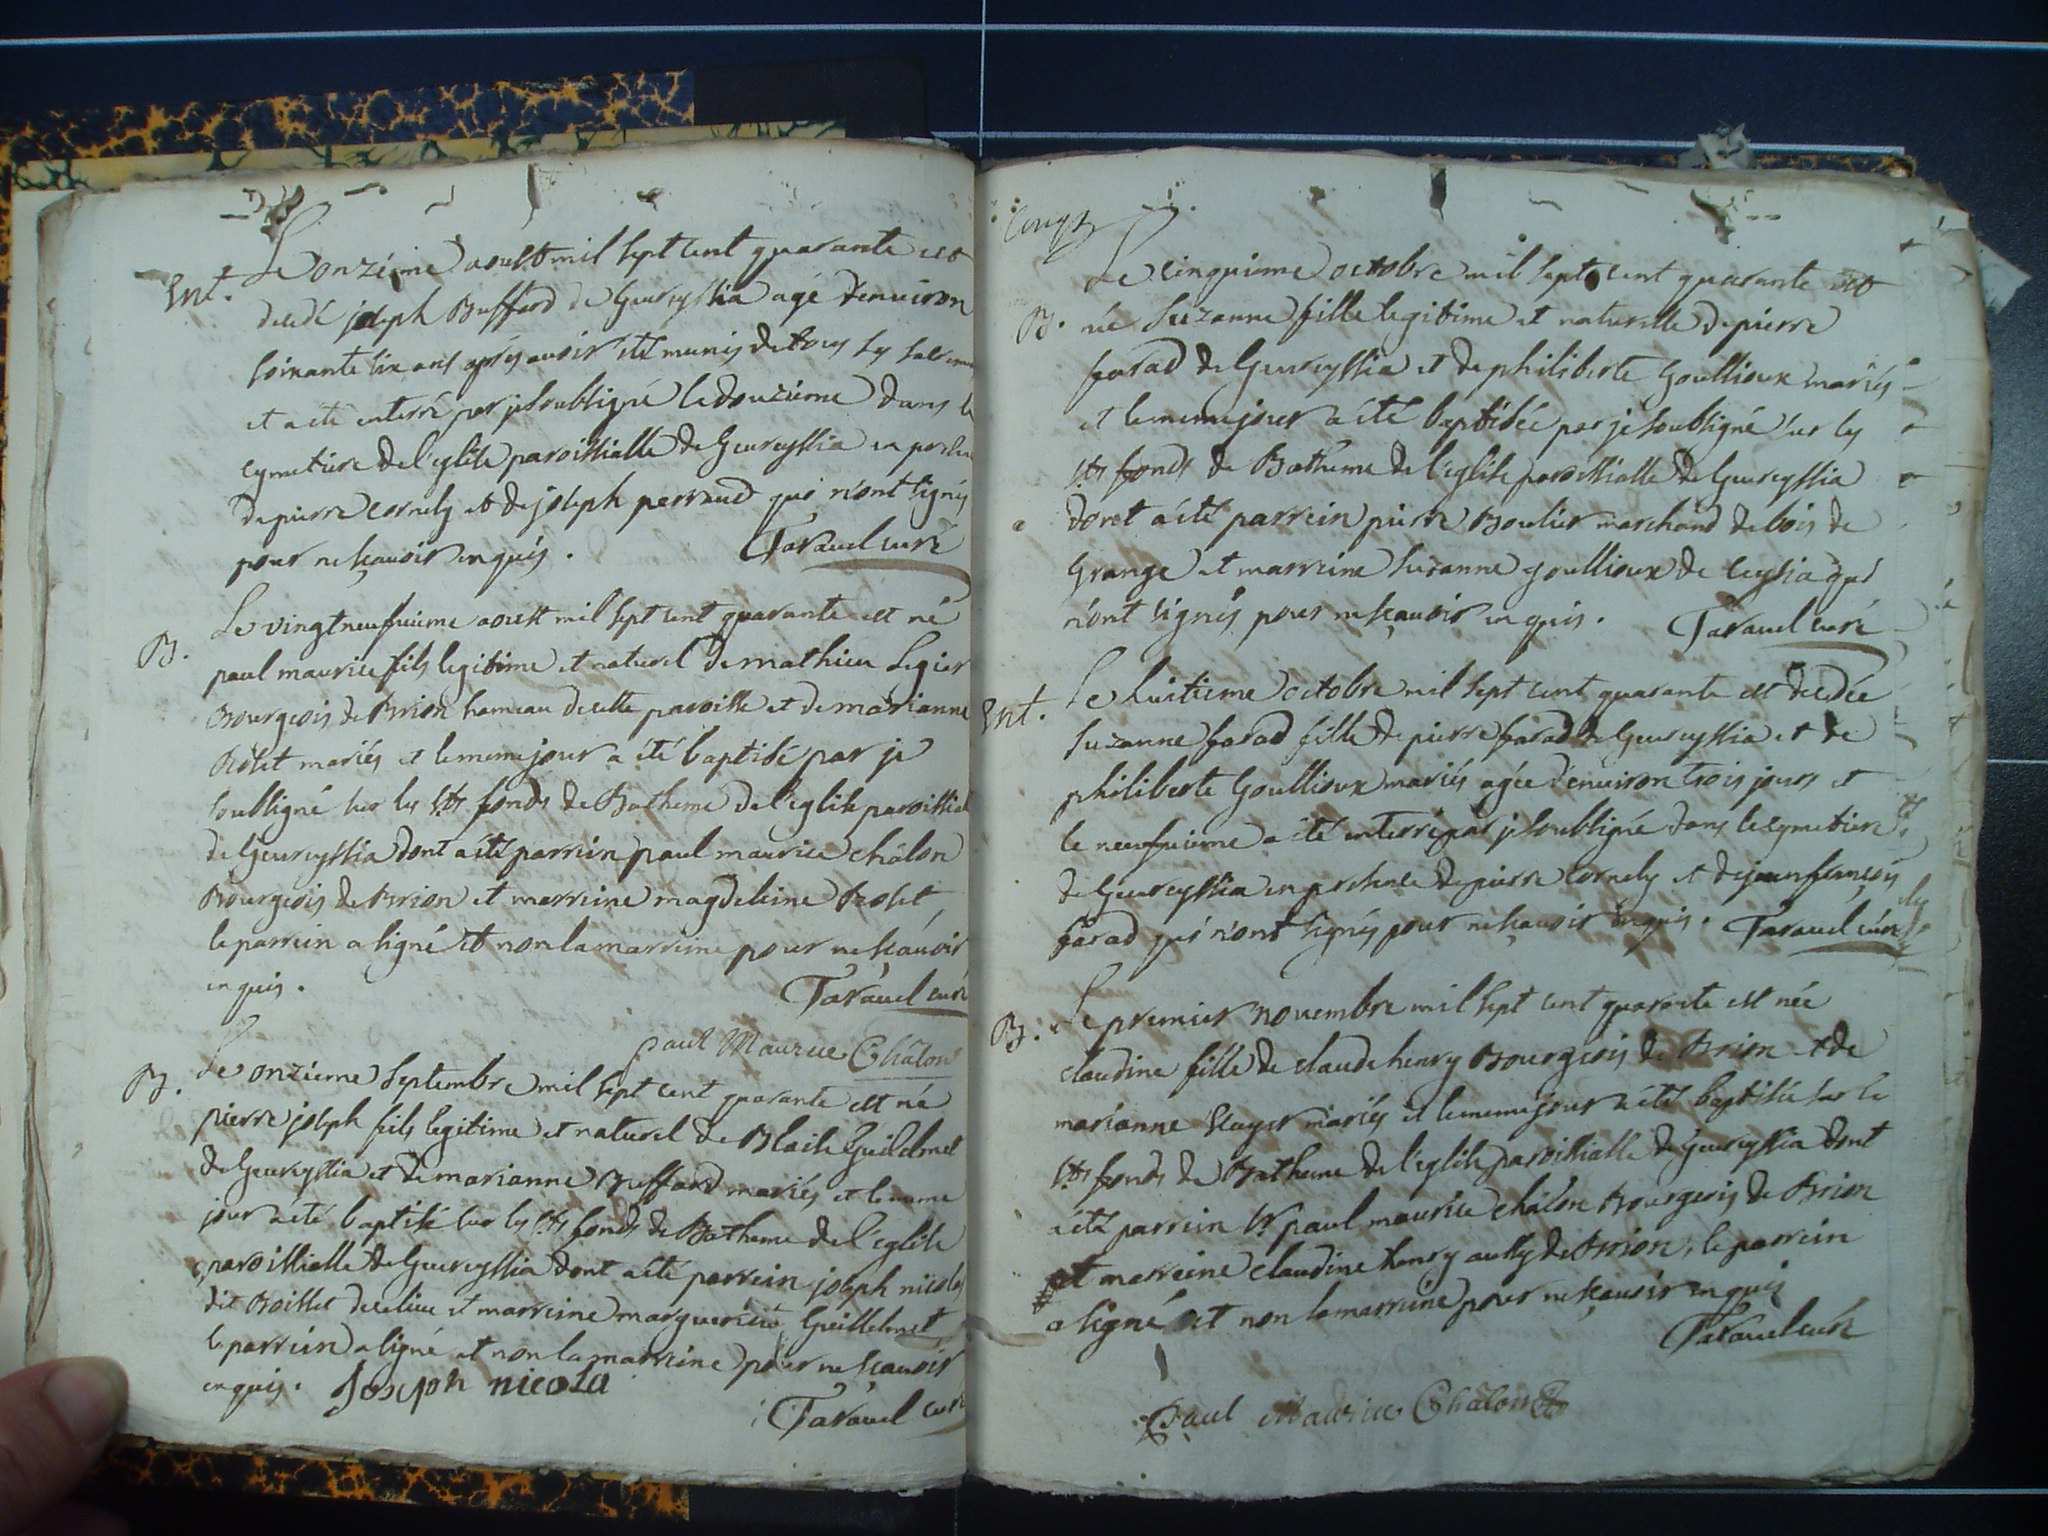 Ent. Le onziéme aoust mil sept cent quarante est
decedé joseph Buffard de Geureyssia agé d'environ
soixante six ans apres avoir été munis de tous les sacremens
et a été enterré par je soubsigné le douzieme dans le
cymetiere de l'eglise paroissialle de Geureyssia en presence
de pierre cornely et de joseph perraud qui n'ont signés
pour ne sçavoir enquis. Taravel curé
B. Le vingt neufvieme aoust mil sept cent quarante est né
paul maurice fils legitime et naturel de mathieu Legier
Bourgeois de Brion hameau de cette paroisse et de marianne
Rolet mariés et le meme jour a été baptisé par je
soubsigné sur les sts fonds de Batheme de l'eglise paroissialle
de Geureyssia dont a été parrein paul maurice châlon
Bourgeois de Brion et marreine magdeleine Rolet
le parrein a signé et non la marreine pour ne sçavoir
enquis. Taravel curé
paul Maurice Châlon
B. Le onzieme septembre mil sept cent quarante est né
pierre joseph fils legitime et naturel de Blaise Guilelmet
de Geureyssia et de marianne Buffard mariés et le meme
jour a été baptisé sur les sts fonds de Batheme de l'eglise
paroissialle de Geureyssia dont a été parrein joseph nicolas
dit de ce lieu et marreine marguerite Guillelmet
le parrein a signé et non la marreine pour ne sçavoir
enquis. Joseph nicola
Taravel curé
Le cinquieme octobre mil sept cent quarante est
B. née Suzanne fille legitime et naturelle de pierre
farad de Geureyssia et de philiberte Goullioux mariés
et le meme jour a été baptisée par je soubsigné sur les
sts fonds de Batheme de l'eglise paroissialle de Geureyssia
dont a été parrein pierre Boulier marchand de bois de
Grange et marreine Suzanne goullioux de Ceysia qui
n'ont signés pour ne sçavoir enquis. Taravel curé
Ent. Le huitieme octobre mil sept cent quarante est decedée
Suzanne farad fille de pierre farad de Geureyssia et de
philiberte Goullioux mariés agée d'environ trois jours et
le neufvieme a été enterré par je soubsigné dans le cymetiere
de Geureyssia en presence de pierre Cornely et de jean françois
farad qui n'ont signés pour ne sçavoir enquis. Taravel curé
B. Le premier novembre mil sept cent quarante est née
claudine fille de claude henry Bourgeois de Brion et de
marianne mariés et le meme jour a été baptisée sur le
sts fonds de Batheme de l'eglise paroissialle de Geureyssia dont
a été parrein sr paul maurice châlon Bourgeois de Brion
et marreine claudine henry aussy de Brion, le parrein
a signé et non la marreine pour ne sçavoir enquis
Taravel curé
Paul Maurice Châlon